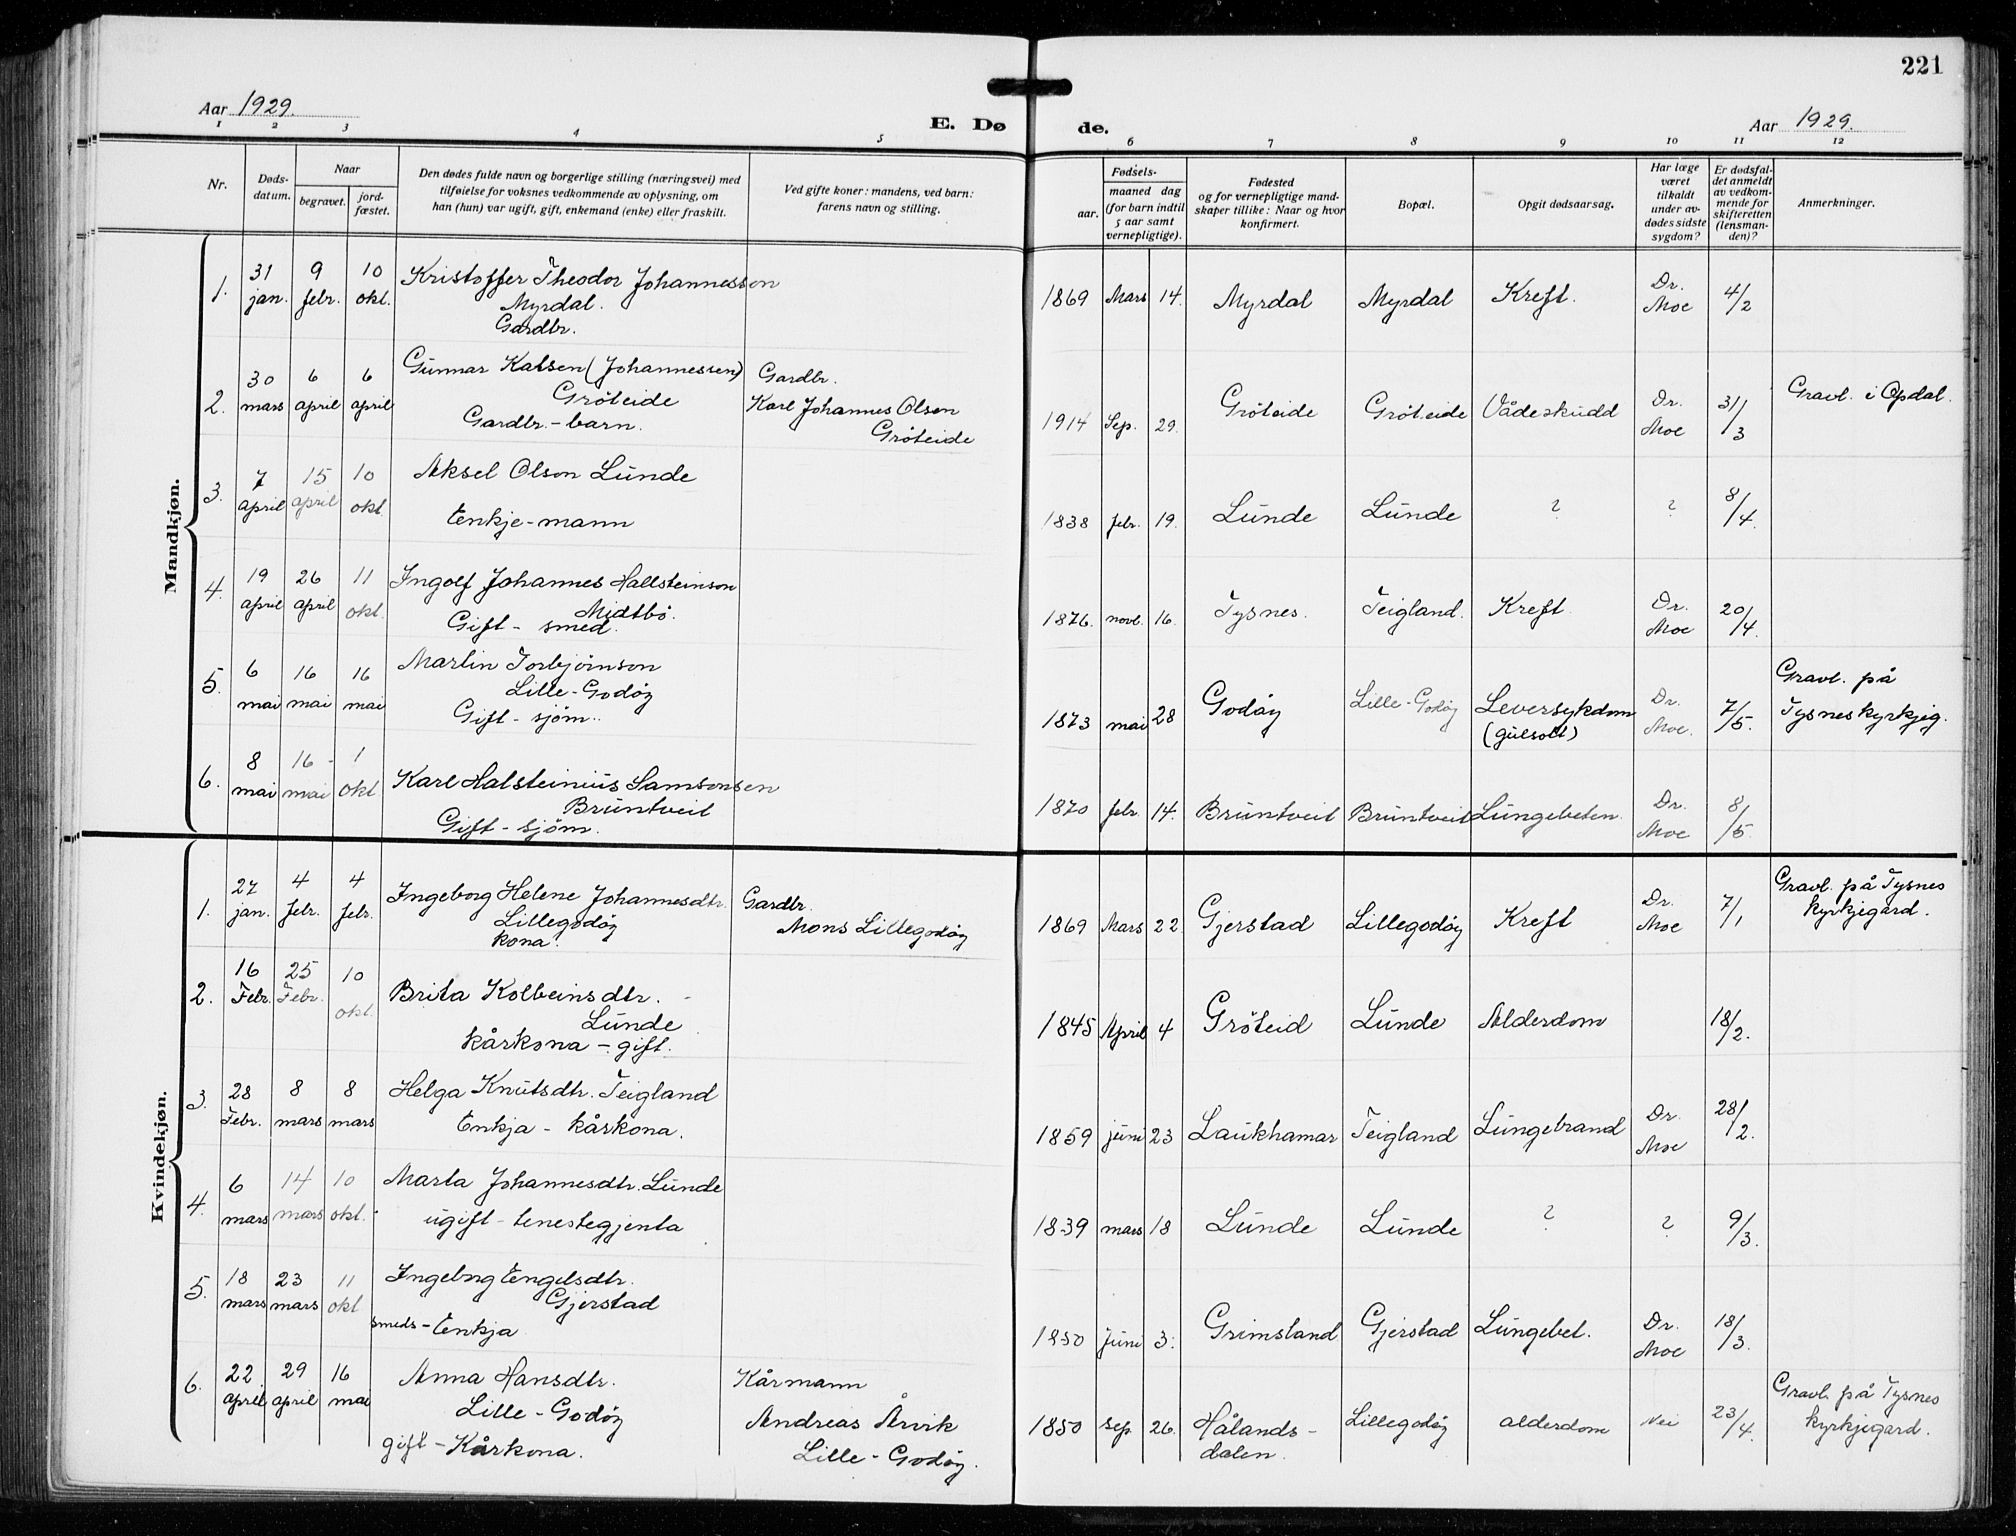 221
Aar 1929.
E. Dø de.
Aar 1929.
1 2 3 4 5 6 7 8 9 10 11 12
Nr.
Døds-
datum.
Naar
begravet.
jord-
fæstet.
Den dødes fulde navn og borgerlige stilling (næringsvei) med
tilføielse for voksnes vedkommende av oplysning, om
han (hun) var ugift, gift, enkemand (enke) eller fraskilt.
Ved gifte koner: mandens, ved barn:
farens navn og stilling.
Fødsels-
aar.
maaned dag
(for barn indtil
5 aar samt
vernepligtige).
Fødested
og for vernepligtige mand-
skaper tillike: Naar og hvor
konfirmert.
Bopæl.
Opgit dødsaarsag.
Har læge
været
tilkaldt
under av-
dødes sidste
sygdom?
Er dødsfal-
det anmeldt
av vedkom-
mende for
skifteretten
(lensman-
den)?
Anmerkninger.
Mandkjøn.
1. 31 jan. 9 febr. 10 okt. Kristoffer Theodor Johannesson
Myrdal.
Gardbr.
1869 Mars 14. Myrdal Myrdal Kreft. Dr. Moe 4/2
2. 30 mars 6 april 6 april Gunnar Kalsen (Johannessen)
Gröteide
Gardbr. - barn.
Gardbr.
Karl Johannes Olsen
Gröteide
1914 Sep. 29. Gröteide Gröteide Vådeskudd Dr. Moe 31/3 Gravl. i Opdal.
3. 7 april 15 april 10 okt. Aksel Olson Lunde
Enkje-mann
1838 febr. 19. Lunde Lunde ? ? 8/4.
4. 19 april 26 april 11 okt. Ingolf Johannes Hallsteinson
Midtbö.
Gift - smed.
1876. novb. 16. Tysnes. Teigland. Kreft. Dr. Moe 20/4.
5. 6 mai 16 mai 16 mai Martin Torbjörnson
Lille-Godöy
Gift - sjöm..
1873 mai 28 Godöy Lille-Godöy Leversykdom
(gulsott)
Dr. Moe. 7/5.
Gravl. på
Tysneskyrkjeg.
6. 8 mai 16 mai - 1 okt Karl Halsteinius Samsonsen
Bruntveit
Gift - sjöm.
1870 febr. 14. Bruntveit Bruntveit Lungebeten. Dr. Moe 8/5.
Kvindekjøn.
1. 27 jan. 4 febr. 4 febr. Ingeborg Helene Johannesdtr.
Lillegodöy
kona.
Gardbr.
Mons Lillegodöy
1869 Mars 22 Gjerstad Lillegodöy Kreft Dr. Moe 7/1
Gravl. på Tysnes
kyrkjegard.
2. 16 Febr. 25 Febr. 10 okt. Brita Kolbeinsdtr.
Lunde
kårkona - gift.
1845 April 4 Gröteid Lunde Alderdom 18/2.
3. 28 Febr. 8 mars 8 mars Helga Knutsdtr. Teigland
Enkja - kårkona.
1859 juni 23 Laukhamar Teigland Lungebrand Dr. Moe 28/2.
4. 6 mars 14 mars 10 okt. Marta Johannesdtr. Lunde
ugift - tenestegjenta
1839 mars 18 Lunde Lunde ? ? 9/3.
5. 18 mars 23 mars 11 okt Ingeborg Engelsdtr.
Gjerstad
smeds - Enkja
1850 Juni 3. Grimsland Gjerstad Lungebet. Dr. Moe 18/3.
6. 22 april 29 april 16 mai Anna Hansdtr.
Lille - Godöy
gift - Kårkona.
Kårmann
Andreas Årvik
Lille - Godöy.
1850 sep. 26. Hålands-
dalen.
Lillegodöy alderdom Nei 23/4.
Gravl. på Tysnes
kyrkjegard.